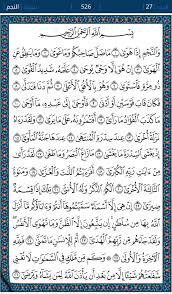 الجزء 27 526 النجم
بِسْمِ اللَّهِ الرَّحْمَٰنِ الرَّحِيمِ
وَالنَّجْمِ إِذَا هَوَىٰ ١ مَا ضَلَّ صَاحِبُكُمْ وَمَا غَوَىٰ ٢ وَمَا يَنطِقُ عَنِ
الْهَوَىٰ ٣ إِنْ هُوَ إِلَّا وَحْيٌ يُوحَىٰ ٤ عَلَّمَهُ شَدِيدُ الْقُوَىٰ ٥
ذُو مِرَّةٍ فَاسْتَوَىٰ ٦ وَهُوَ بِالْأُفُقِ الْأَعْلَىٰ ٧ ثُمَّ دَنَا فَتَدَلَّىٰ ٨
فَكَانَ قَابَ قَوْسَيْنِ أَوْ أَدْنَىٰ ٩ فَأَوْحَىٰ إِلَىٰ عَبْدِهِ مَا أَوْحَىٰ ١٠
مَا كَذَبَ الْفُؤَادُ مَا رَأَىٰ ١١ أَفَتُمَارُونَهُ عَلَىٰ مَا يَرَىٰ ١٢ وَلَقَدْ رَآهُ
نَزْلَةً أُخْرَىٰ ١٣ عِندَ سِدْرَةِ الْمُنتَهَىٰ ١٤ عِندَهَا جَنَّةُ الْمَأْوَىٰ ١٥
إِذْ يَغْشَى السِّدْرَةَ مَا يَغْشَىٰ ١٦ مَا زَاغَ الْبَصَرُ وَمَا طَغَىٰ ١٧ لَقَدْ رَأَىٰ
مِنْ آيَاتِ رَبِّهِ الْكُبْرَىٰ ١٨ أَفَرَأَيْتُمُ اللَّاتَ وَالْعُزَّىٰ ١٩ وَمَنَاةَ
الثَّالِثَةَ الْأُخْرَىٰ ٢٠ أَلَكُمُ الذَّكَرُ وَلَهُ الْأُنثَىٰ ٢١ تِلْكَ إِذًا قِسْمَةٌ
ضِيزَىٰ ٢٢ إِنْ هِيَ إِلَّا أَسْمَاءٌ سَمَّيْتُمُوهَا أَنتُمْ وَآبَاؤُكُم مَّا أَنزَلَ
اللَّهُ بِهَا مِن سُلْطَانٍ إِن يَتَّبِعُونَ إِلَّا الظَّنَّ وَمَا تَهْوَى الْأَنفُسُ
وَلَقَدْ جَاءَهُم مِّن رَّبِّهِمُ الْهُدَىٰ ٢٣ أَمْ لِلْإِنسَانِ مَا تَمَنَّىٰ ٢٤ فَلِلَّهِ
الْآخِرَةُ وَالْأُولَىٰ ٢٥ وَكَم مِّن مَّلَكٍ فِي السَّمَاوَاتِ لَا تُغْنِي
شَفَاعَتُهُمْ شَيْئًا إِلَّا مِن بَعْدِ أَن يَأْذَنَ اللَّهُ لِمَن يَشَاءُ وَيَرْضَىٰ ٢٦